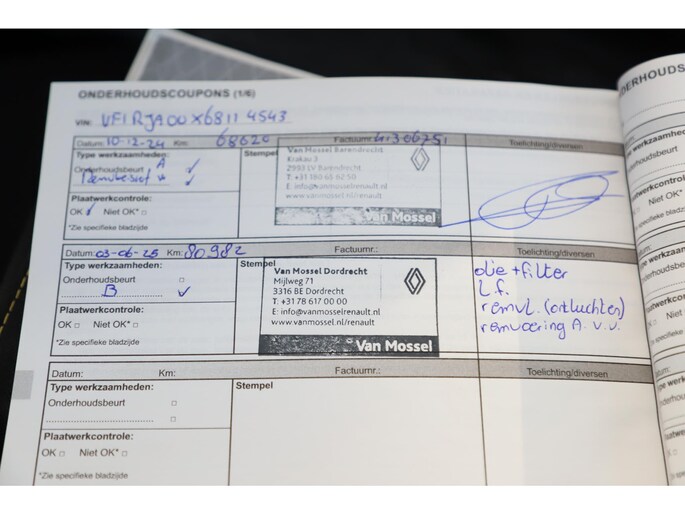 ONDERHOUDSCOUPONS (1/6)
VIN: VF1RJA00X68114543
Datum: 10-12-24 Km: 68620 Factuurnr.: Toelichting/diversen
Type werkzaamheden: Stempel
Onderhoudsbeurt A
Plaatwerkcontrole:
OK Niet OK*
*Zie specifieke bladzijde
Van Mossel Barendrecht
Krakau 3
2993 LV Barendrecht
E: info@vanmosselrenault.nl
www.vanmosselrenault.nl
Van Mossel
Datum: 03-06-25 Km: 80982 Factuurnr.: Toelichting/diversen
Type werkzaamheden: Stempel
Onderhoudsbeurt
B
Plaatwerkcontrole:
OK Niet OK*
*Zie specifieke bladzijde
Van Mossel Dordrecht
Mijlweg 71
3316 BE Dordrecht
T: +31 78 617 00 00
E: info@vanmosselrenault.nl
www.vanmossel.nl/renault
Van Mossel
olie + filter
L.f.
remvl. (ontluchten)
remvoering A.v.v.
Datum: Km: Factuurnr.: Toelichting/diversen
Type werkzaamheden: Stempel
Onderhoudsbeurt
Plaatwerkcontrole:
OK Niet OK*
*Zie specifieke bladzijde